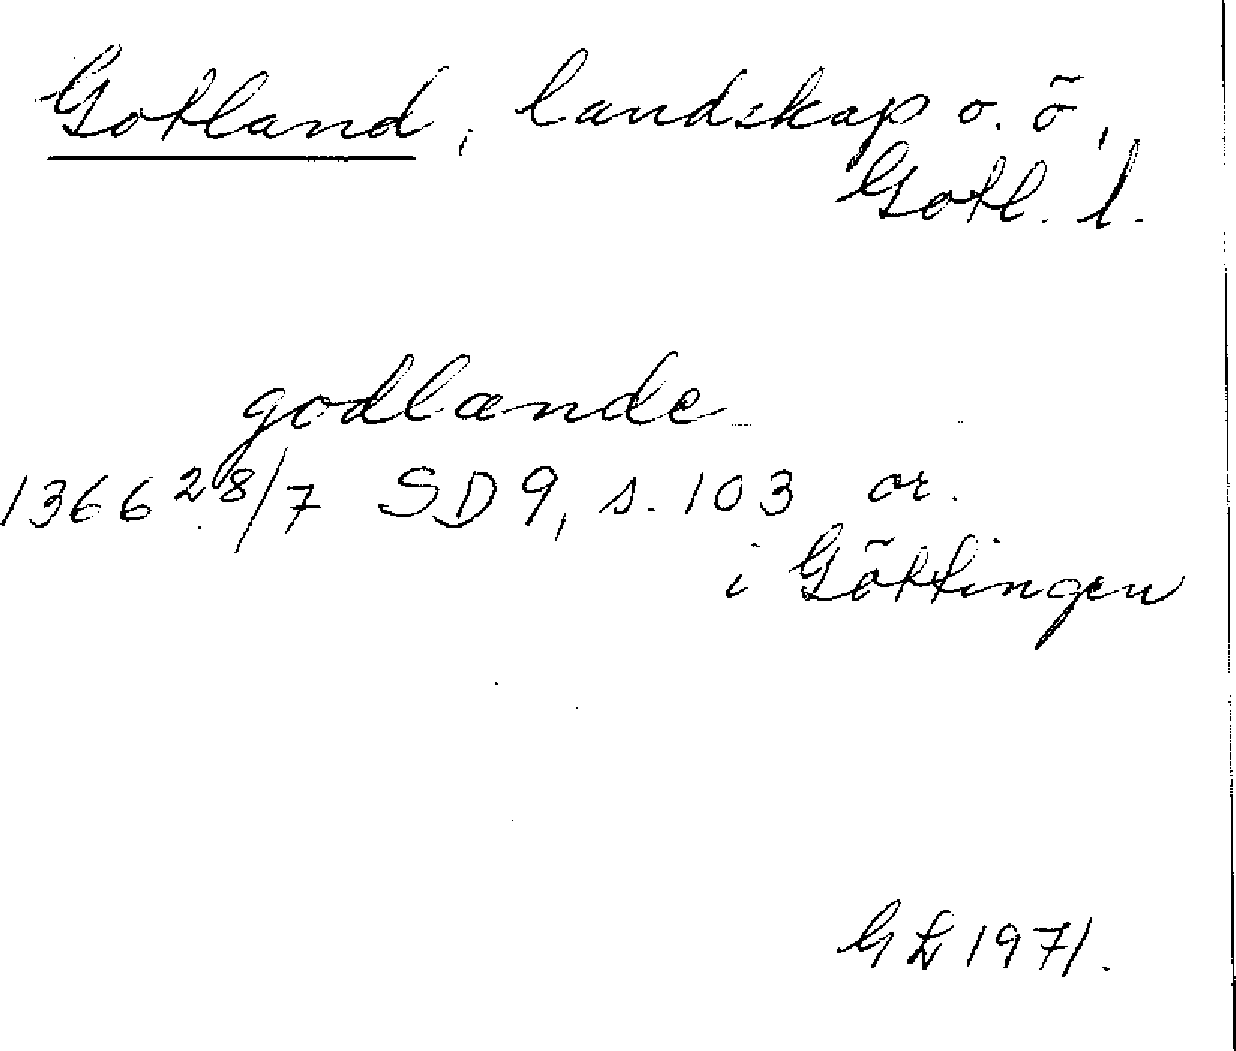 Gotland, landskap o. ö,
Gotl. l.
godlande
1366 28/7 SD 9, s. 103 or.
i Göttingen
1971.